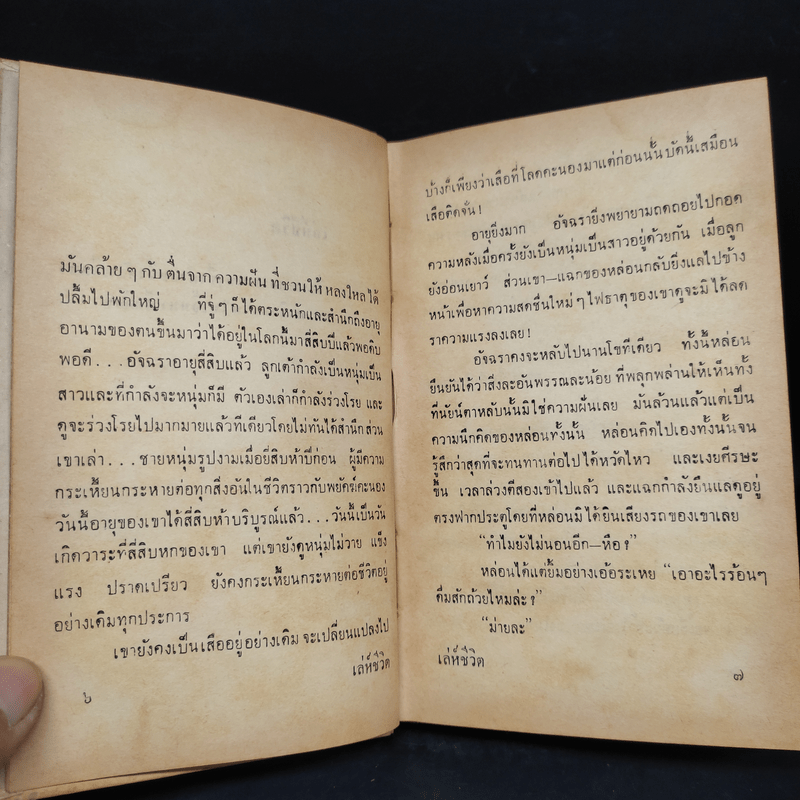 มันคล้าย ๆ กับ ตื่นจาก ความฝัน ที่ ชวนให้ หลงใหล ได้
ปลื้มไปพักใหญ่ ที่จู่ ๆ ก็ได้ตระหนักและสำนึกถึงอายุ
อานามของตนขึ้นมาว่าได้อยู่ในโลกนี้มาสี่สิบปีแล้วพอดิบ
พอดี . . . อัจฉราอายุสี่สิบแล้ว ลูกเต้ากำลังเป็นหนุ่มเป็น
สาวและที่กำลังจะหนุ่มก็มี ตัวเองเล่าก็กำลังร่วงโรย และ
ดูจะร่วงโรยไปมากมายแล้วทีเดียวโดยไม่ทันได้สำนึก ส่วน
เขาเล่า . . . ชายหนุ่มรูปงามเมื่อยี่สิบห้าปีก่อน ผู้มีความ
กระเหี้ยนกระหายต่อทุกสิ่งอันในชีวิตราวกับพยัคฆ์คะนอง
วันนี้อายุของเขาได้สี่สิบห้าบริบูรณ์แล้ว . . . วันนี้เป็นวัน
เกิดวาระที่สี่สิบหกของเขา แต่เขายังดูหนุ่มไม่วาย แข็ง
แรง ปราดเปรียว ยังคงกระเหี้ยนกระหายต่อชีวิตอยู่
อย่างเดิมทุกประการ
เขายังคงเป็นเสืออยู่อย่างเดิม จะเปลี่ยนแปลงไป
เล่ห์ชีวิต
๖
บ้างก็เพียงว่าเสือที่โลดคะนองมาแต่ก่อนนั้น บัดนี้เสมือน
เสือติดจั่น !
อายุยิ่งมาก อัจฉรายิ่งพยายามถดถอยไปกอด
ความหลังเมื่อครั้งยังเป็นหนุ่มเป็นสาวอยู่ด้วยกัน เมื่อลูก
ยังอ่อนเยาว์ ส่วนเขา—แฉกของหล่อนกลับยิ่งแลไปข้าง
หน้าเพื่อหาความสดชื่นใหม่ ๆ ไฟธาตุของเขาดูจะมิได้ลด
ราความแรงลงเลย !
อัจฉราคงจะหลับไปนานโขทีเดียว ทั้งนี้หล่อน
ยืนยันได้ว่าสิ่งละอันพรรณละน้อย ที่พลุกพล่านให้เห็นทั้ง
ที่นัยน์ตาหลับนั้นมิใช่ความฝันเลย มันล้วนแล้วแต่เป็น
ความนึกคิดของหล่อนทั้งนั้น หล่อนคิดไปเองทั้งนั้นจน
รู้สึกว่าสุดที่จะทนทานต่อไปได้หวัดไหว และเงยศีรษะ
ขึ้น เวลาล่วงตีสองเข้าไปแล้ว และแฉกกำลังยืนแลดูอยู่
ตรงฟากประตูโดยที่หล่อนมิได้ยินเสียงรถของเขาเลย
“ทำไมยังไม่นอนอีก—หือ ?”
หล่อนได้แต่ยิ้มอย่างเอ้อระเหย “เอาอะไรร้อนๆ
ดื่มสักถ้วยไหมล่ะ ?”
“ม่ายละ”
เล่ห์ชีวิต
๗